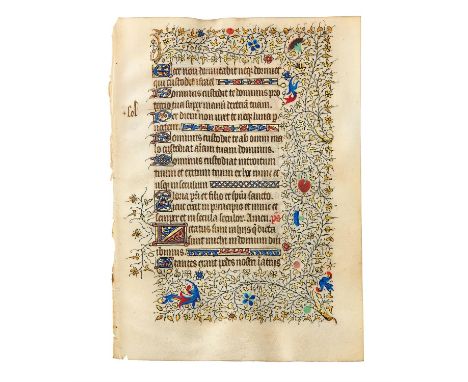 Ecce non dormitabit neq3 dormiet
qui custodit israel
Dominus custodit te dominus pro
tectio tua super manū dexterā tuam.
Per diem non uret te neq3 luna p
noctem.
Dominus custodit te ab omni ma
lo custodiat aīam tuam dominus.
Dominus custodiat introitum
tuum et exitum tuum ex hoc nunc et
usq3 in seculum
Gloria pr̄i et filio et spūi sancto.
Sicut erat in principio et nunc et
semper et in secula seculor. Amen. ps
Letatus sum in hiis q̄ dicta
sunt michi in domum dn̄i
ibimus.
Stantes erant pedes nostri in atriis